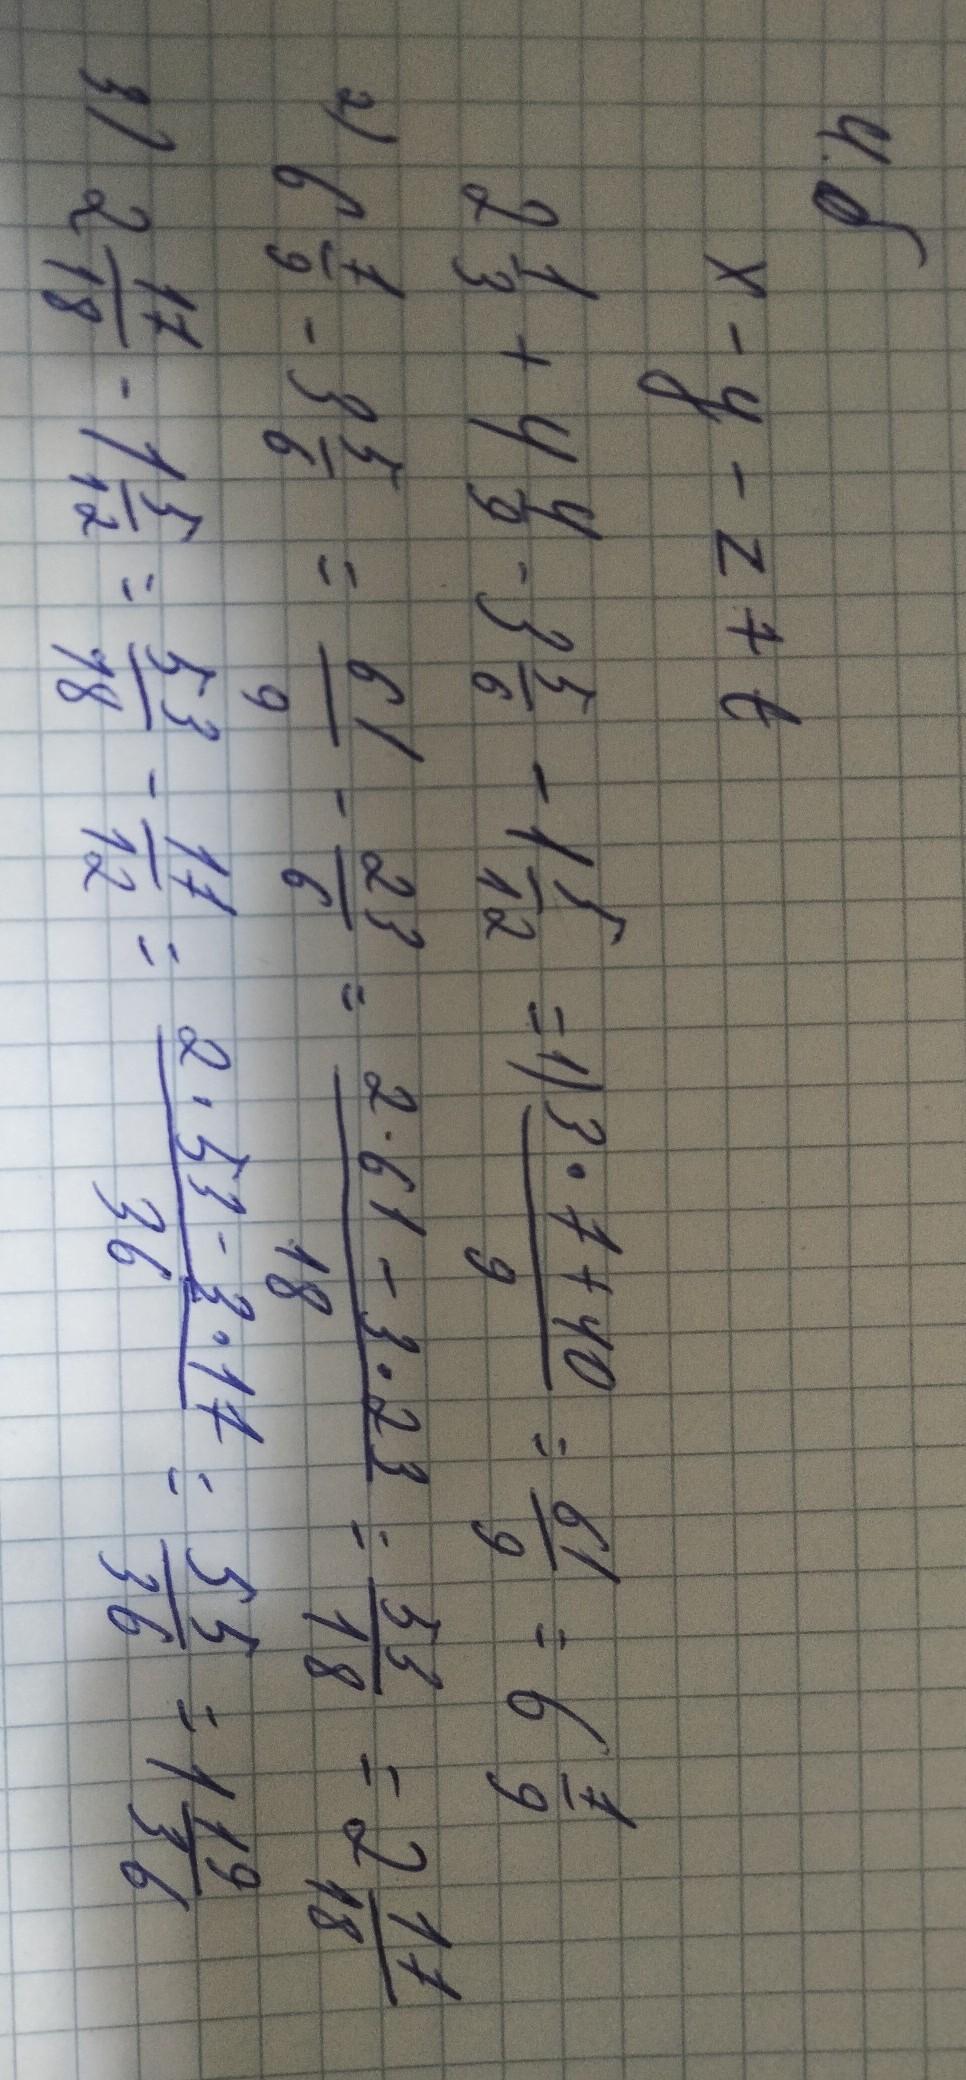 4.б
x - y - z + t
2 1/3 + 4 4/9 - 3 5/6 - 1 5/12 = 1) 3·7+40/9 = 61/9 = 6 7/9
2) 6 7/9 - 3 5/6 = 61/9 - 23/6 = 2·61-3·23/18 = 53/18 = 2 17/18
3) 2 17/18 - 1 5/12 = 53/18 - 17/12 = 2·53-3·17/36 = 55/36 = 1 19/36